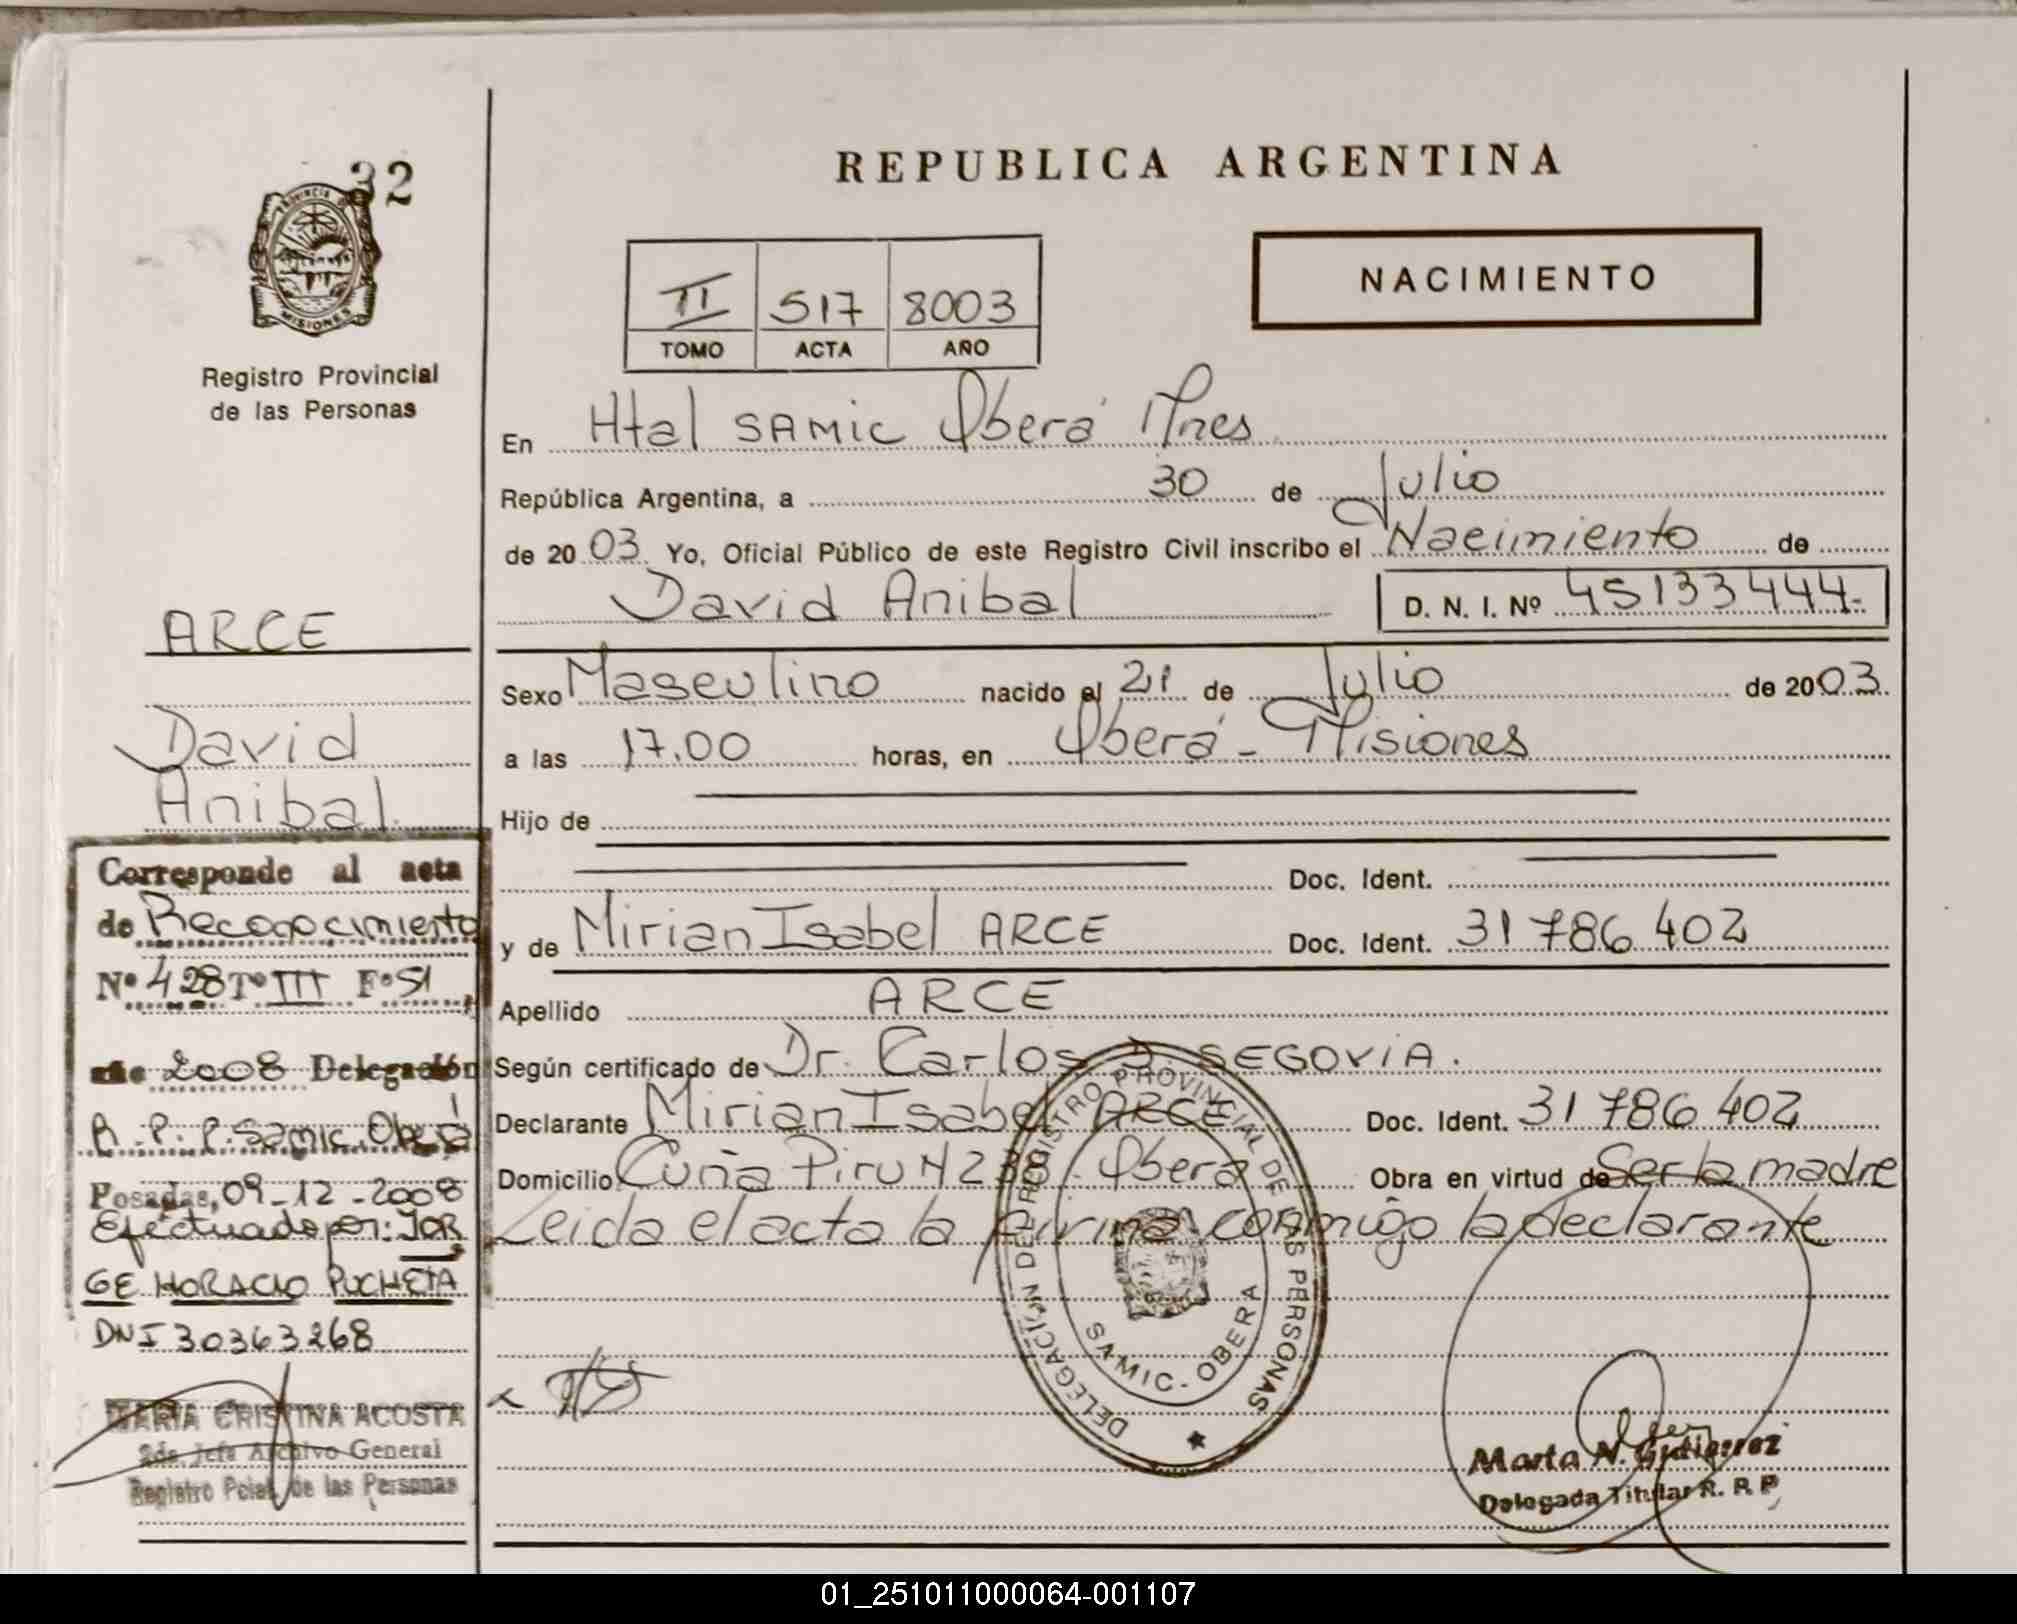 32
PROVINCIA DE
MISIONES
Registro Provincial
de las Personas
ARCE
David
Anibal
Corresponde al acta
de Reconocimiento
Nº 428 Tº III Fº 51
año 2008 Delegación
R.P.P. Samic. Oberá
Posadas, 09-12-2008
Efectuado por: JOR
GE HORACIO PUCHETA
DNI 30363268
MARIA CRISTINA ACOSTA
2da. Jefa Archivo General
Registro Pcial. de las Personas
REPUBLICA ARGENTINA
II 517 8003
TOMO ACTA AÑO
NACIMIENTO
En Htal SAMIC Oberá Mnes
República Argentina, a 30 de Julio
de 20 03 Yo, Oficial Público de este Registro Civil inscribo el Nacimiento de
David Anibal D. N. I. Nº 45133444.-
Sexo Masculino nacido el 21 de Julio de 2003.
a las 17.00 horas, en Oberá - Misiones
Hijo de
Doc. Ident.
y de Mirian Isabel ARCE Doc. Ident. 31 786 402
Apellido ARCE
Según certificado de Dr. Carlos D. SEGOVIA.
Declarante Mirian Isabel ARCE Doc. Ident. 31 786 402
Domicilio Cuña Piru Oberá Obra en virtud de Ser la madre
Leida el acta la firma conmigo la declarante
DELEGACIÓN DEL REGISTRO PROVINCIAL DE LAS PERSONAS
SAMIC - OBERA
Marta N. Gutierrez
Delegada Titular R. P. P.
01_251011000064-001107